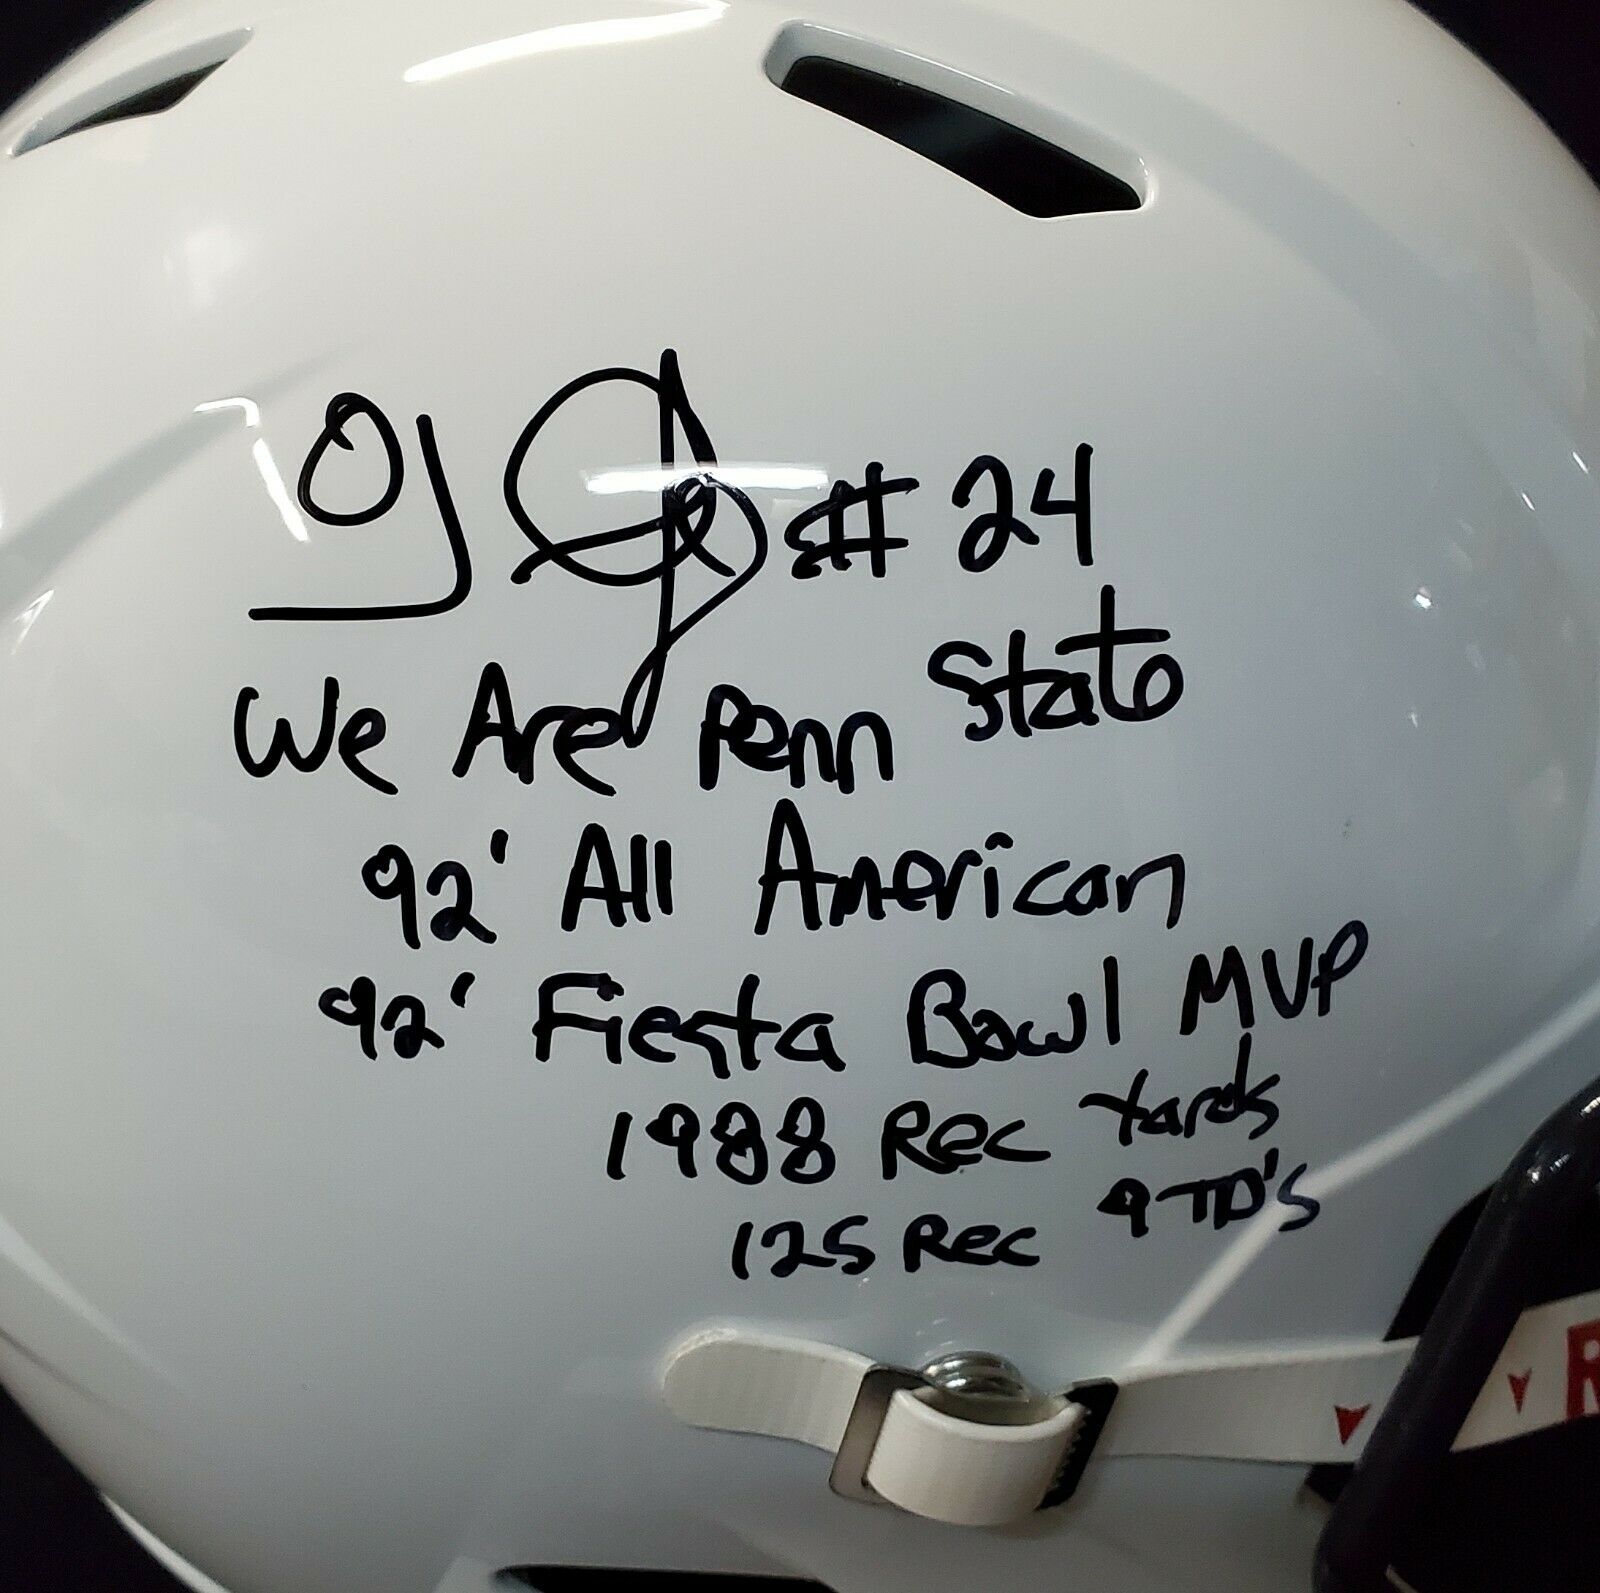 OJ #24
We Are Penn State
92' All American
92' Fiesta Bowl MVP
1988 Rec Yards
125 Rec 9 TD's
R